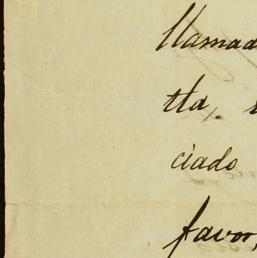 llamad
tta,
ciado
favor,